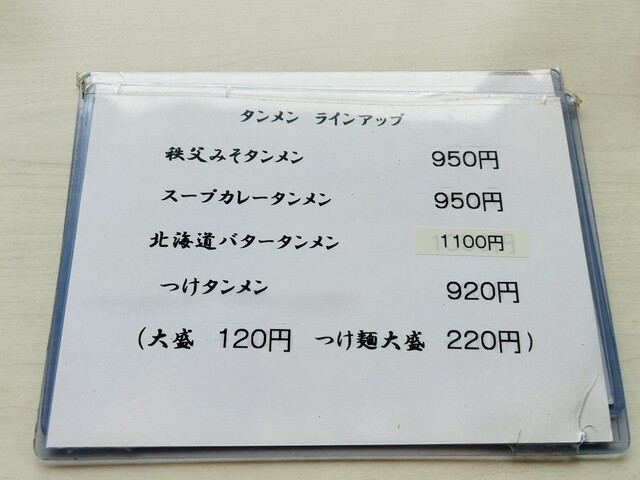 タンメン ラインアップ
秩父みそタンメン 950円
スープカレータンメン 950円
北海道バタータンメン 1100円
つけタンメン 920円
(大盛 120円 つけ麺大盛 220円)